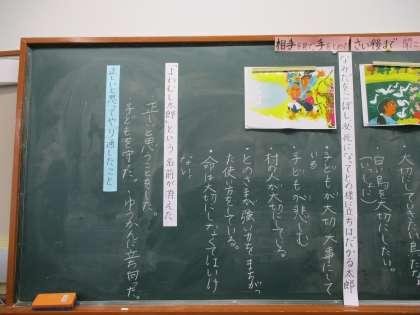 相手を見て手
さい後まで
なみだをこぼし、必死になってとの様に立ちはだかる太郎
大切にしたい
白鳥を大切にしたい。
子どもが大切 大事にして
いる
子どもが悲しむ
村の人が大切にしている。
とのさまが強い力をまちがっ
た使い方をしている。
命は大切にしなくてはいけ
ない。
「よわむし太郎」という名前が消えた
正しいと思うことをした。
子どもを守った。ゆうかんに立ち向った。
正しいと思ってやり通したこと